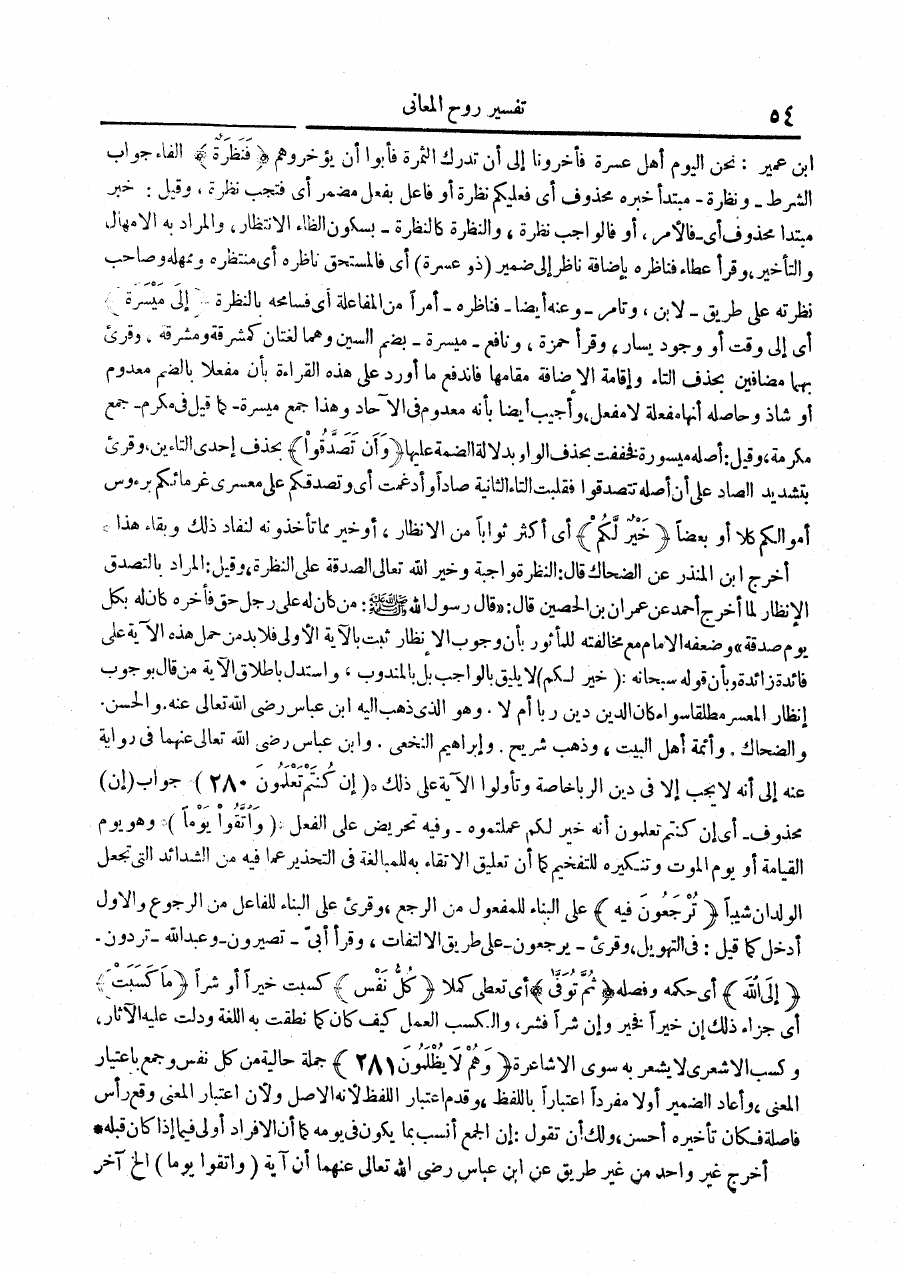 ٥٤
تفسير روح المعانى
ابن عمير : نحن اليوم أهل عسرة فأخرونا إلى أن تدرك الثمرة فأبوا أن يؤخروهم ﴿ فَنَظِرَةٌ ﴾ الفاء جواب
الشرط ـ ونظرة ـ مبتدأ خبره محذوف أى فعليكم نظرة أو فاعل بفعل مضمر أى فتجب نظرة ، وقيل : خبر
مبتدا محذوف أى ـ فالأمر ، أو فالواجب نظرة ، والنظرة كالنظرة ـ بسكون الظاء الانتظار ، والمراد به الامهال
والتأخير ، وقرأ عطاء فناظره بإضافة ناظر إلى ضمير (ذو عسرة) أى فالمستحق ناظره أى منتظره وممهله وصاحب
نظرته على طريق ـ لابن ، وتامر ـ وعنه أيضا ـ فناظره ـ أمراً من المفاعلة أى فسامحه بالنظرة ﴿ إِلَى مَيْسَرَةٍ ﴾
أى إلى وقت أو وجود يسار ، وقرأ حمزة ، ونافع ـ ميسرة ـ بضم السين وهما لغتان كمشرقة ومشرقة . وقرئ
بهما مضافين بحذف التاء وإقامة الإضافة مقامها فاندفع ما أورد على هذه القراءة بأن مفعلا بالضم معدوم
أو شاذ وحاصله أنها مفعلة لا مفعل ، وأجيب أيضا بأنه معدوم فى الآحاد وهذا جمع ميسرة ـ كما قيل فى مكرم ـ جمع
مكرمة ، وقيل : أصله ميسورة فخففت بحذف الواو بدلالة الضمة عليها ﴿ وَأَن تَصَدَّقُواْ ﴾ بحذف إحدى التاءين ، وقرئ
بتشديد الصاد على أن أصله تتصدقوا فقلبت التاء الثانية صاداً وأدغمت أى وتصدقكم على معسرى غرمائكم برءوس
أموالكم كلا أو بعضاً ﴿ خَيْرٌ لَّكُمْ ﴾ أى أكثر ثواباً من الانظار ، أو خير مما تأخذونه لنفاد ذلك وبقاء هذا *
أخرج ابن المنذر عن الضحاك قال : النظرة واجبة وخير الله تعالى الصدقة على النظرة ، وقيل : المراد بالتصدق
الإنظار لما أخرج أحمد عن عمران بن الحصين قال : « قال رسول الله ﷺ : من كان له على رجل حق فأخره كان له بكل
يوم صدقة » وضعفه الامام مع مخالفته للمأثور بأن وجوب الإنظار ثبت بالآية الأولى فلابد من حمل هذه الآية على
فائدة زائدة وبأن قوله سبحانه : ( خير لكم) لا يليق بالواجب بل بالمندوب ، واستدل باطلاق الآية من قال بوجوب
إنظار المعسر مطلقا سواء كان الدين دين ربا أم لا . وهو الذى ذهب اليه ابن عباس رضى الله تعالى عنه . والحسن .
والضحاك . وأئمة أهل البيت ، وذهب شريح . وإبراهيم النخعى . وابن عباس رضى الله تعالى عنهما فى رواية
عنه إلى أنه لايجب إلا فى دين الربا خاصة وتأولوا الآية على ذلك ﴿ إِن كُنتُمْ تَعْلَمُونَ ٢٨٠ ﴾ جواب (إن)
محذوف ـ أى إن كنتم تعلمون أنه خير لكم عملتموه ـ وفيه تحريض على الفعل ﴿ وَاتَّقُواْ يَوْماً ﴾ وهو يوم
القيامة أو يوم الموت وتنكيره للتفخيم كما أن تعليق الاتقاء به للمبالغة فى التحذير عما فيه من الشدائد التى تجعل
الولدان شيباً ﴿ تُرْجَعُونَ فيه ﴾ على البناء للمفعول من الرجع ، وقرئ على البناء للفاعل من الرجوع والاول
أدخل كما قيل : فى التهويل ، وقرئ ـ يرجعون ـ على طريق الالتفات ، وقرأ أبىّ ـ تصيرون ـ وعبدالله ـ تردون ـ
﴿ إِلَى اللَّه ﴾ أى حكمه وفصله ﴿ ثُمَّ تُوَفَّى ﴾ أى تعطى كملا ﴿ كُلُّ نَفْسٍ ﴾ كسبت خيراً أو شراً ﴿ مَا كَسَبَتْ ﴾
أى جزاء ذلك إن خيراً فخير وإن شراً فشر ، والكسب العمل كيف كان كما نطقت به اللغة ودلت عليه الآثار ،
وكسب الاشعرى لا يشعر به سوى الاشاعرة ﴿ وَهُمْ لَا يُظْلَمُونَ ٢٨١ ﴾ جملة حالية من كل نفس وجمع باعتبار
المعنى ، وأعاد الضمير أولا مفرداً اعتباراً باللفظ ، وقدم اعتبار اللفظ لأنه الاصل ولأن اعتبار المعنى وقع رأس
فاصلة فكان تأخيره أحسن ، ولك أن تقول : إن الجمع أنسب بما يكون فى يومه كما أن الافراد أولى فيما إذا كان قبله *
أخرج غير واحد من غير طريق عن ابن عباس رضى الله تعالى عنهما أن آية ( واتقوا يوما ) الخ آخر